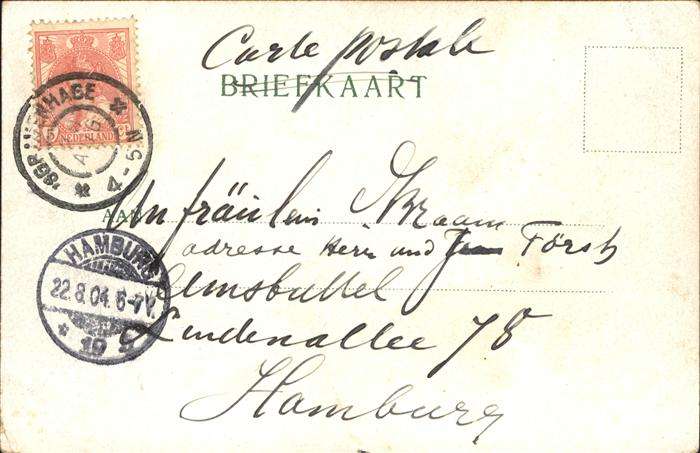 Carte postale
BRIEFKAART
'S GRAVENHAGE
4-5 N
5 NEDERLAND
AAN
An fräulein Abraam
adresse Herr und Frau Försh
Eimsbuttel
Lindenallee 78
Hamburg
HAMBURG
22.8.04. 6-7 V.
* 19